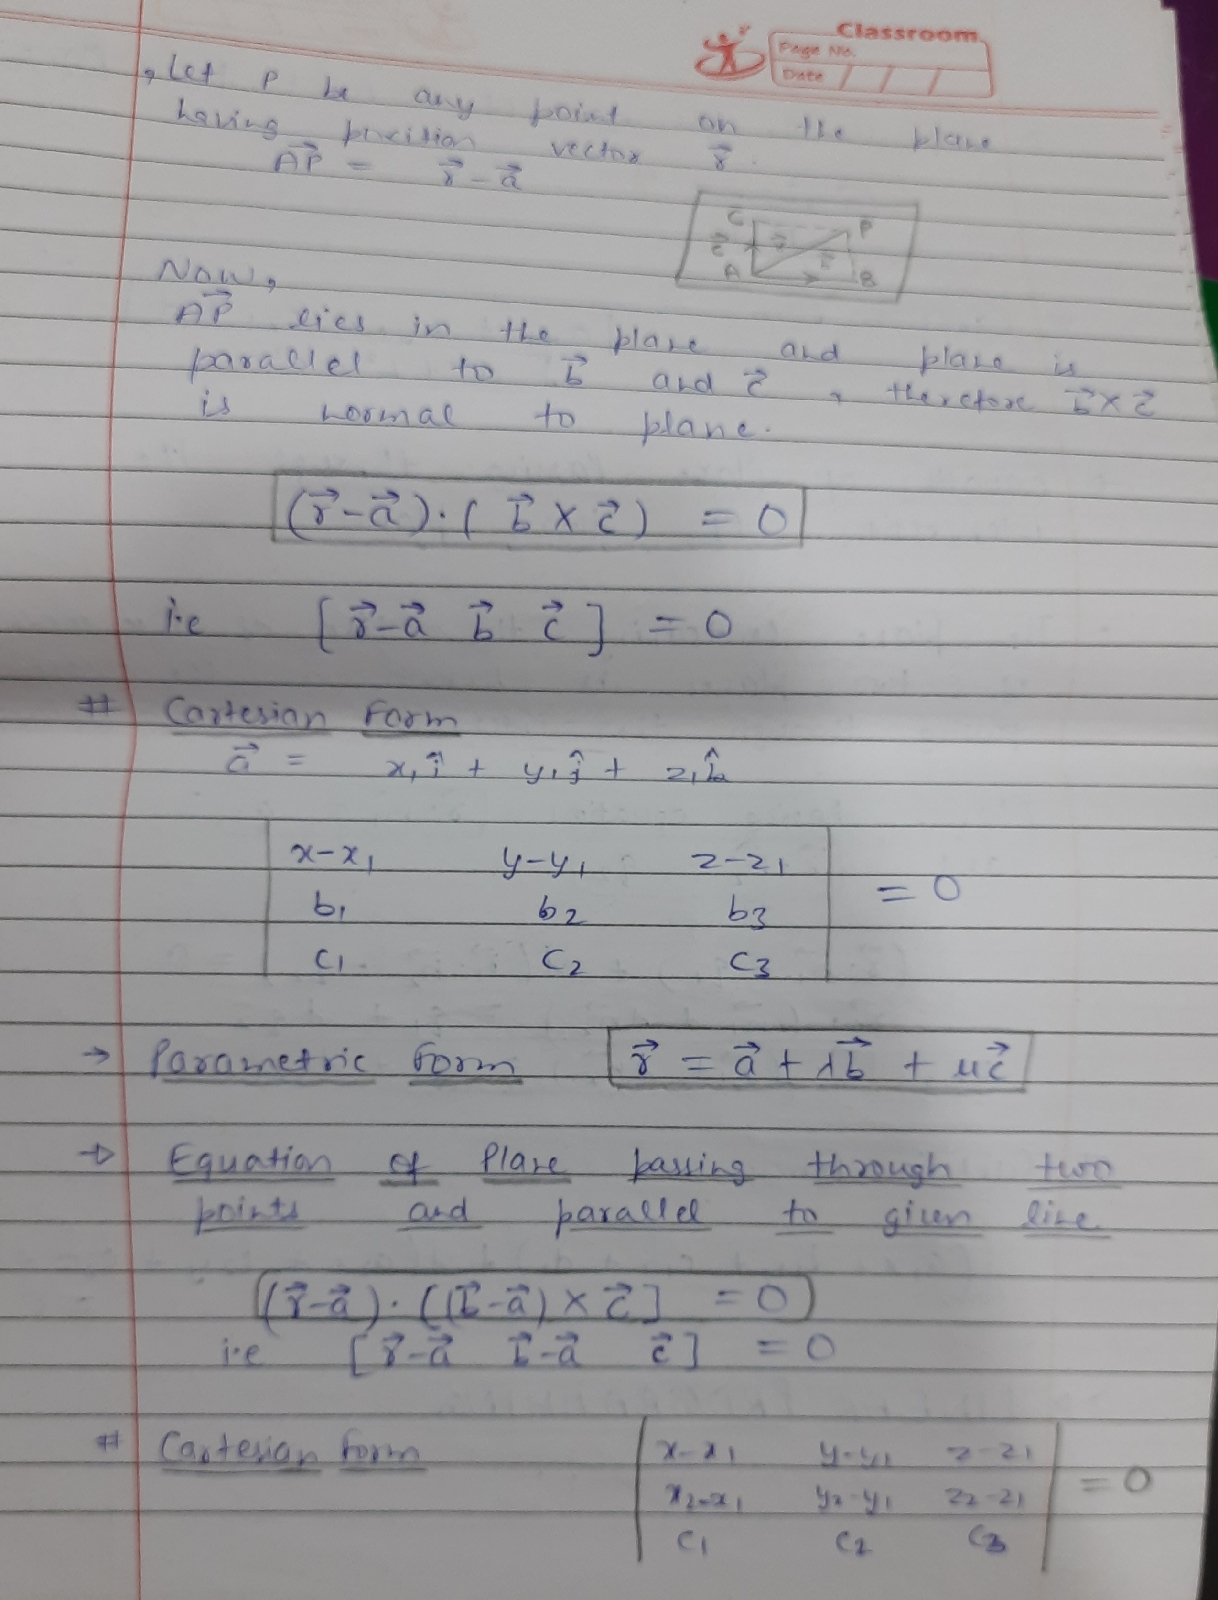 Classroom
Page No.
Date / / /
, Let P be any point on the plane
having position vector r⃗.
AP⃗ = r⃗ - a⃗
C P
c⃗
A B
Now,
AP⃗ lies in the plane and plane is
parallel to b⃗ and c⃗, therefore b⃗ × c⃗
is normal to plane.
(r⃗ - a⃗) · ( b⃗ × c⃗ ) = 0
i.e [ r⃗ - a⃗ b⃗ c⃗ ] = 0
# Cartesian Form
a⃗ = x₁î + y₁ĵ + z₁k̂
| x-x₁ y-y₁ z-z₁ |
| b₁ b₂ b₃ | = 0
| c₁ c₂ c₃ |
→ Parametric Form r⃗ = a⃗ + λb⃗ + μc⃗
→ Equation of Plane passing through two
points and parallel to given line
(r⃗ - a⃗) · ((b⃗ - a⃗) × c⃗ ] = 0
i.e [ r⃗ - a⃗ b⃗ - a⃗ c⃗ ] = 0
# Cartesian Form
| x-x₁ y-y₁ z-z₁ |
| x₂-x₁ y₂-y₁ z₂-z₁ | = 0
| c₁ c₂ c₃ |